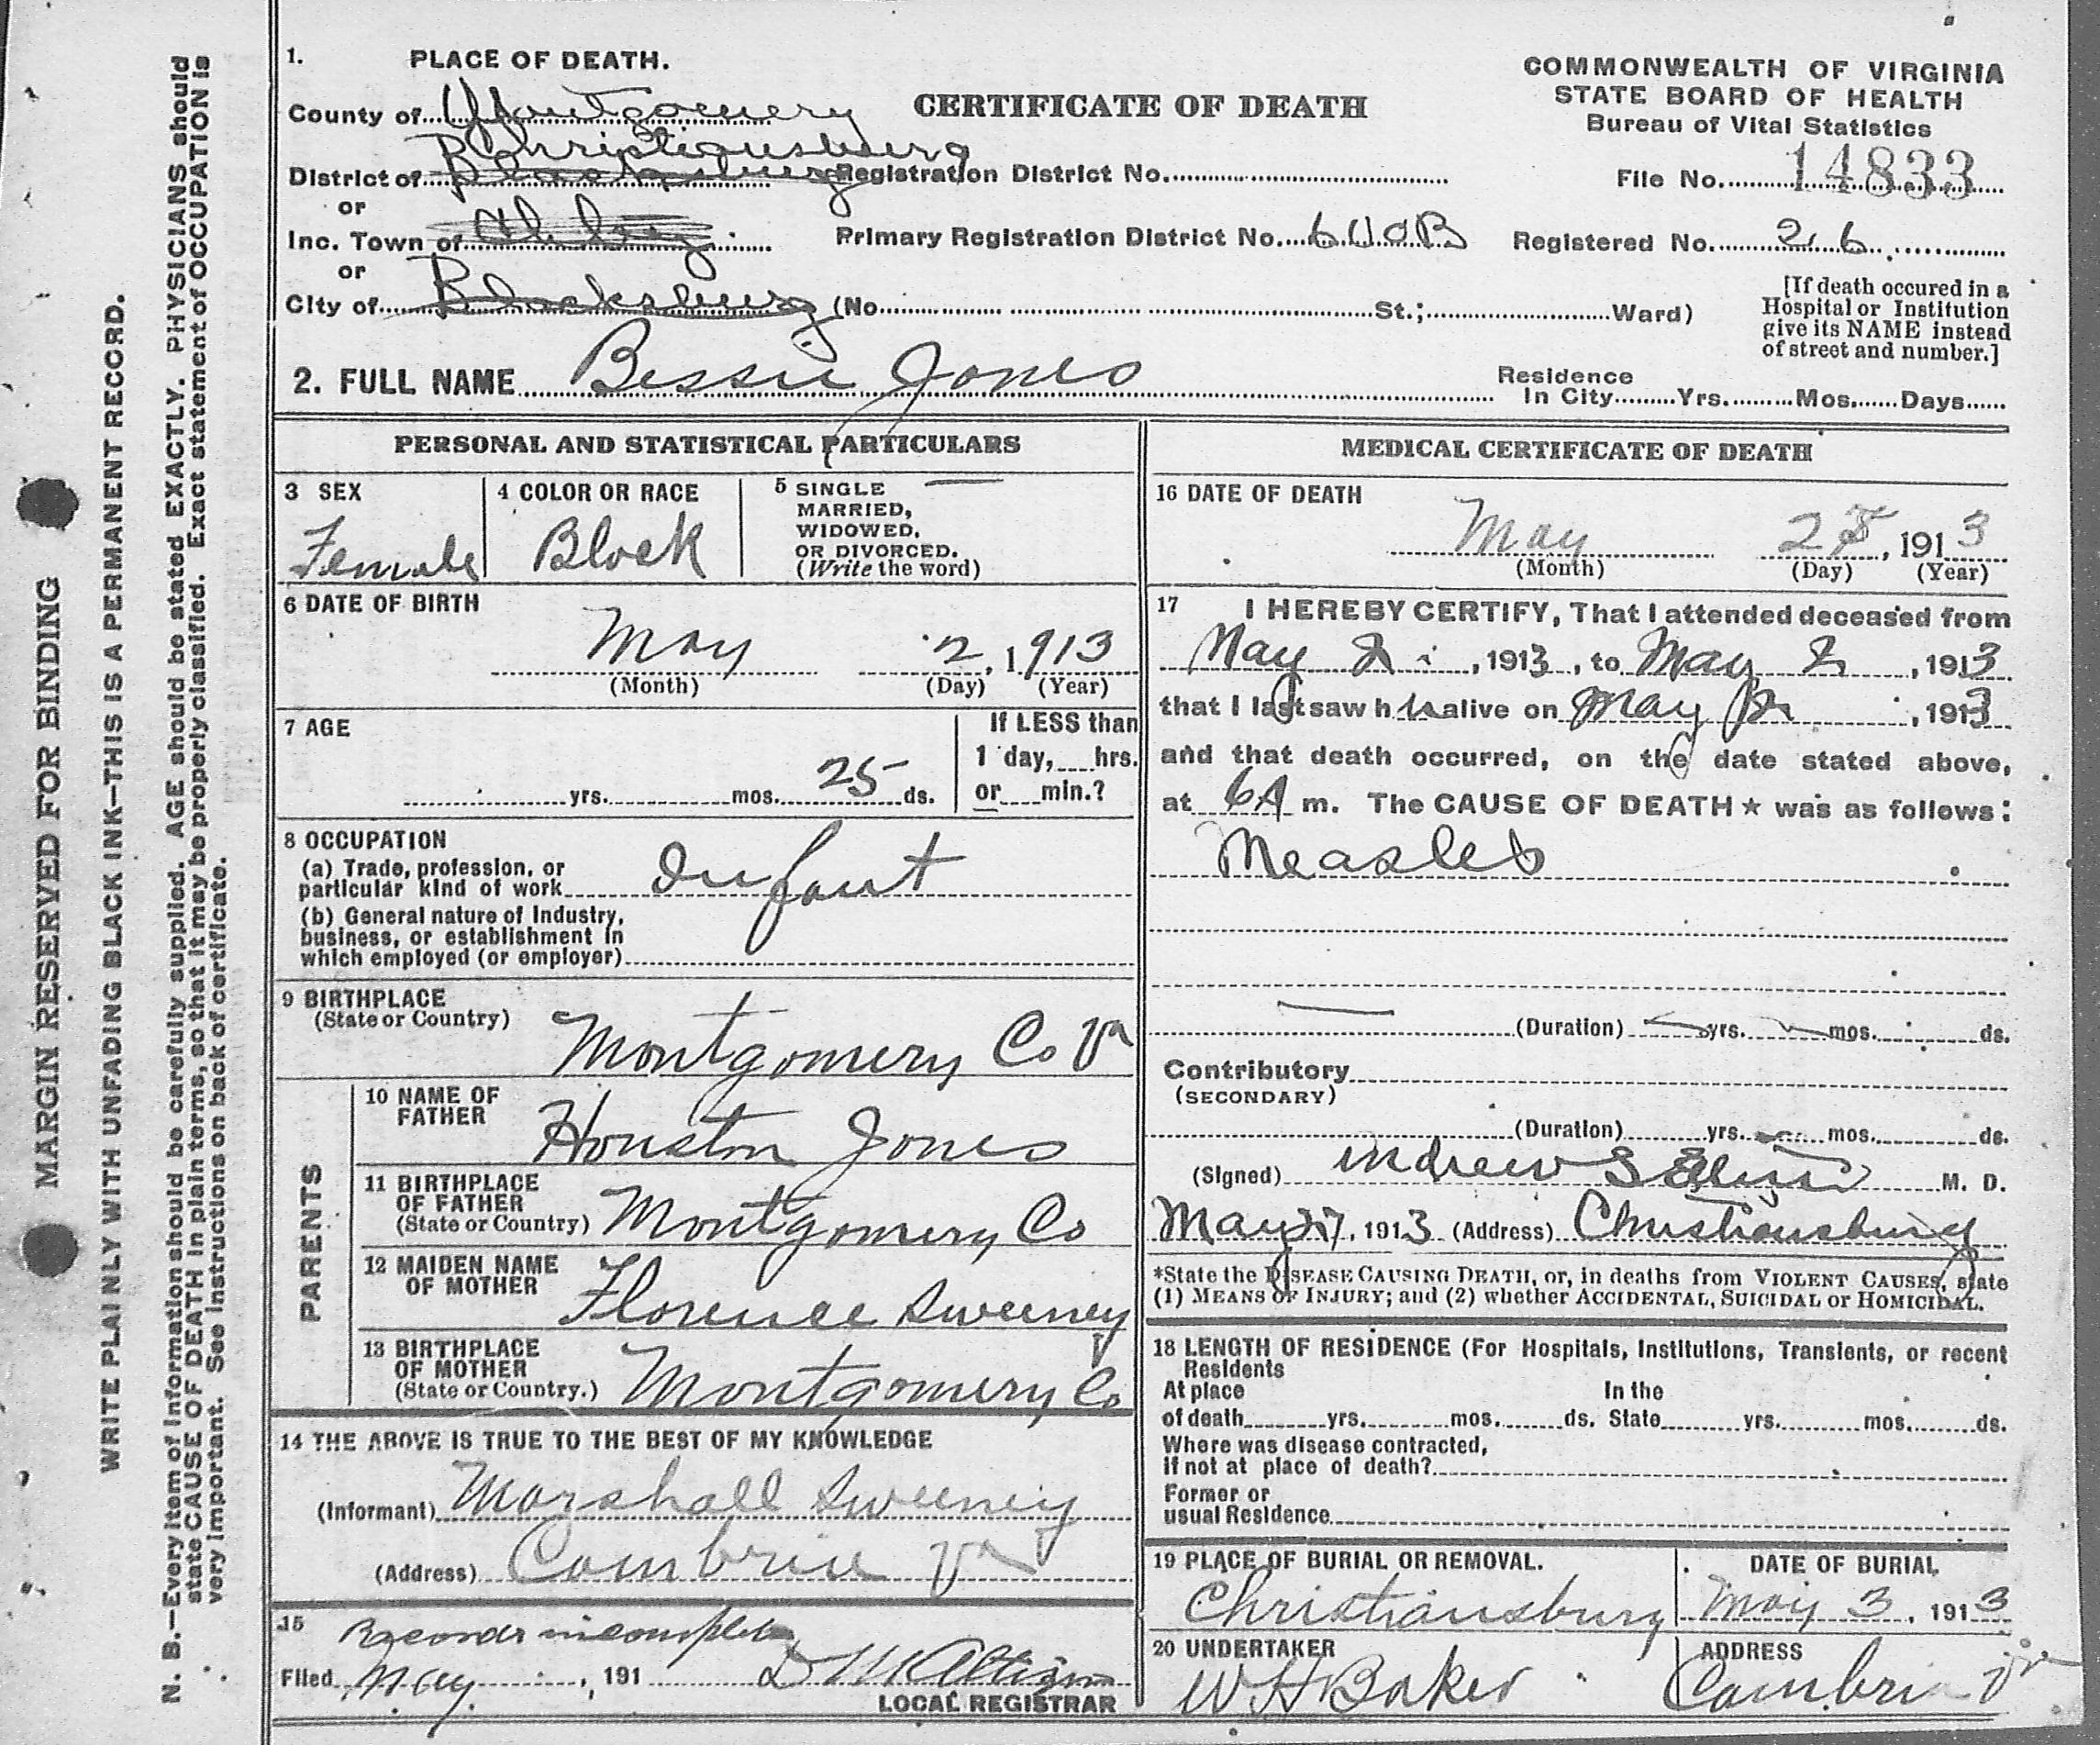 1. PLACE OF DEATH.
County of Montgomery
Christiansburg
District of Blacksburg
or
Inc. Town of
or
City of Blacksburg (No. St.; Ward)
CERTIFICATE OF DEATH
Registration District No.
Primary Registration District No. 60B
COMMONWEALTH OF VIRGINIA
STATE BOARD OF HEALTH
Bureau of Vital Statistics
File No. 14833
Registered No. 26
[If death occured in a
Hospital or Institution
give its NAME instead
of street and number.]
2. FULL NAME Bessie Jones
Residence
In City Yrs. Mos. Days
PERSONAL AND STATISTICAL PARTICULARS
3 SEX
Female
4 COLOR OR RACE
Black
5 SINGLE
MARRIED,
WIDOWED,
OR DIVORCED.
(Write the word)
6 DATE OF BIRTH
May 2, 1913
(Month) (Day) (Year)
7 AGE
yrs. mos. 25 ds.
If LESS than
1 day, hrs.
or min.?
8 OCCUPATION
(a) Trade, profession, or
particular kind of work Infant
(b) General nature of Industry,
business, or establishment in
which employed (or employer)
9 BIRTHPLACE
(State or Country)
Montgomery Co Va
PARENTS
10 NAME OF
FATHER
Houston Jones
11 BIRTHPLACE
OF FATHER
(State or Country) Montgomery Co
12 MAIDEN NAME
OF MOTHER
Florence Sweeney
13 BIRTHPLACE
OF MOTHER
(State or Country.) Montgomery Co
14 THE ABOVE IS TRUE TO THE BEST OF MY KNOWLEDGE
(Informant) Marshall Sweeney
(Address) Cambria Va
15 Records incomplete
Filed May, 191
LOCAL REGISTRAR
MEDICAL CERTIFICATE OF DEATH
16 DATE OF DEATH
May , 1913
(Month) (Day) (Year)
17 I HEREBY CERTIFY, That I attended deceased from
May 2, 1913, to May 2, 1913
that I last saw h alive on May , 1913
and that death occurred, on the date stated above,
at 6A m. The CAUSE OF DEATH★ was as follows:
Measles
(Duration) yrs. mos. ds.
Contributory
(SECONDARY)
(Duration) yrs. mos. ds.
(Signed) Andrew S M. D.
May 27, 1913 (Address) Christiansburg
*State the DISEASE CAUSING DEATH, or, in deaths from VIOLENT CAUSES, state
(1) MEANS OF INJURY; and (2) whether ACCIDENTAL, SUICIDAL or HOMICIDAL.
18 LENGTH OF RESIDENCE (For Hospitals, Institutions, Transients, or recent
Residents
At place In the
of death yrs. mos. ds. State yrs. mos. ds.
Where was disease contracted,
If not at place of death?
Former or
usual Residence
19 PLACE OF BURIAL OR REMOVAL.
Christiansburg
DATE OF BURIAL
May 3, 1913
20 UNDERTAKER
W H Baker
ADDRESS
Cambria Va
MARGIN RESERVED FOR BINDING
WRITE PLAINLY WITH UNFADING BLACK INK—THIS IS A PERMANENT RECORD.
N. B.—Every item of Information should be carefully supplied. AGE should be stated EXACTLY. PHYSICIANS should
state CAUSE OF DEATH in plain terms, so that it may be properly classified. Exact statement of OCCUPATION is
very important. See instructions on back of certificate.